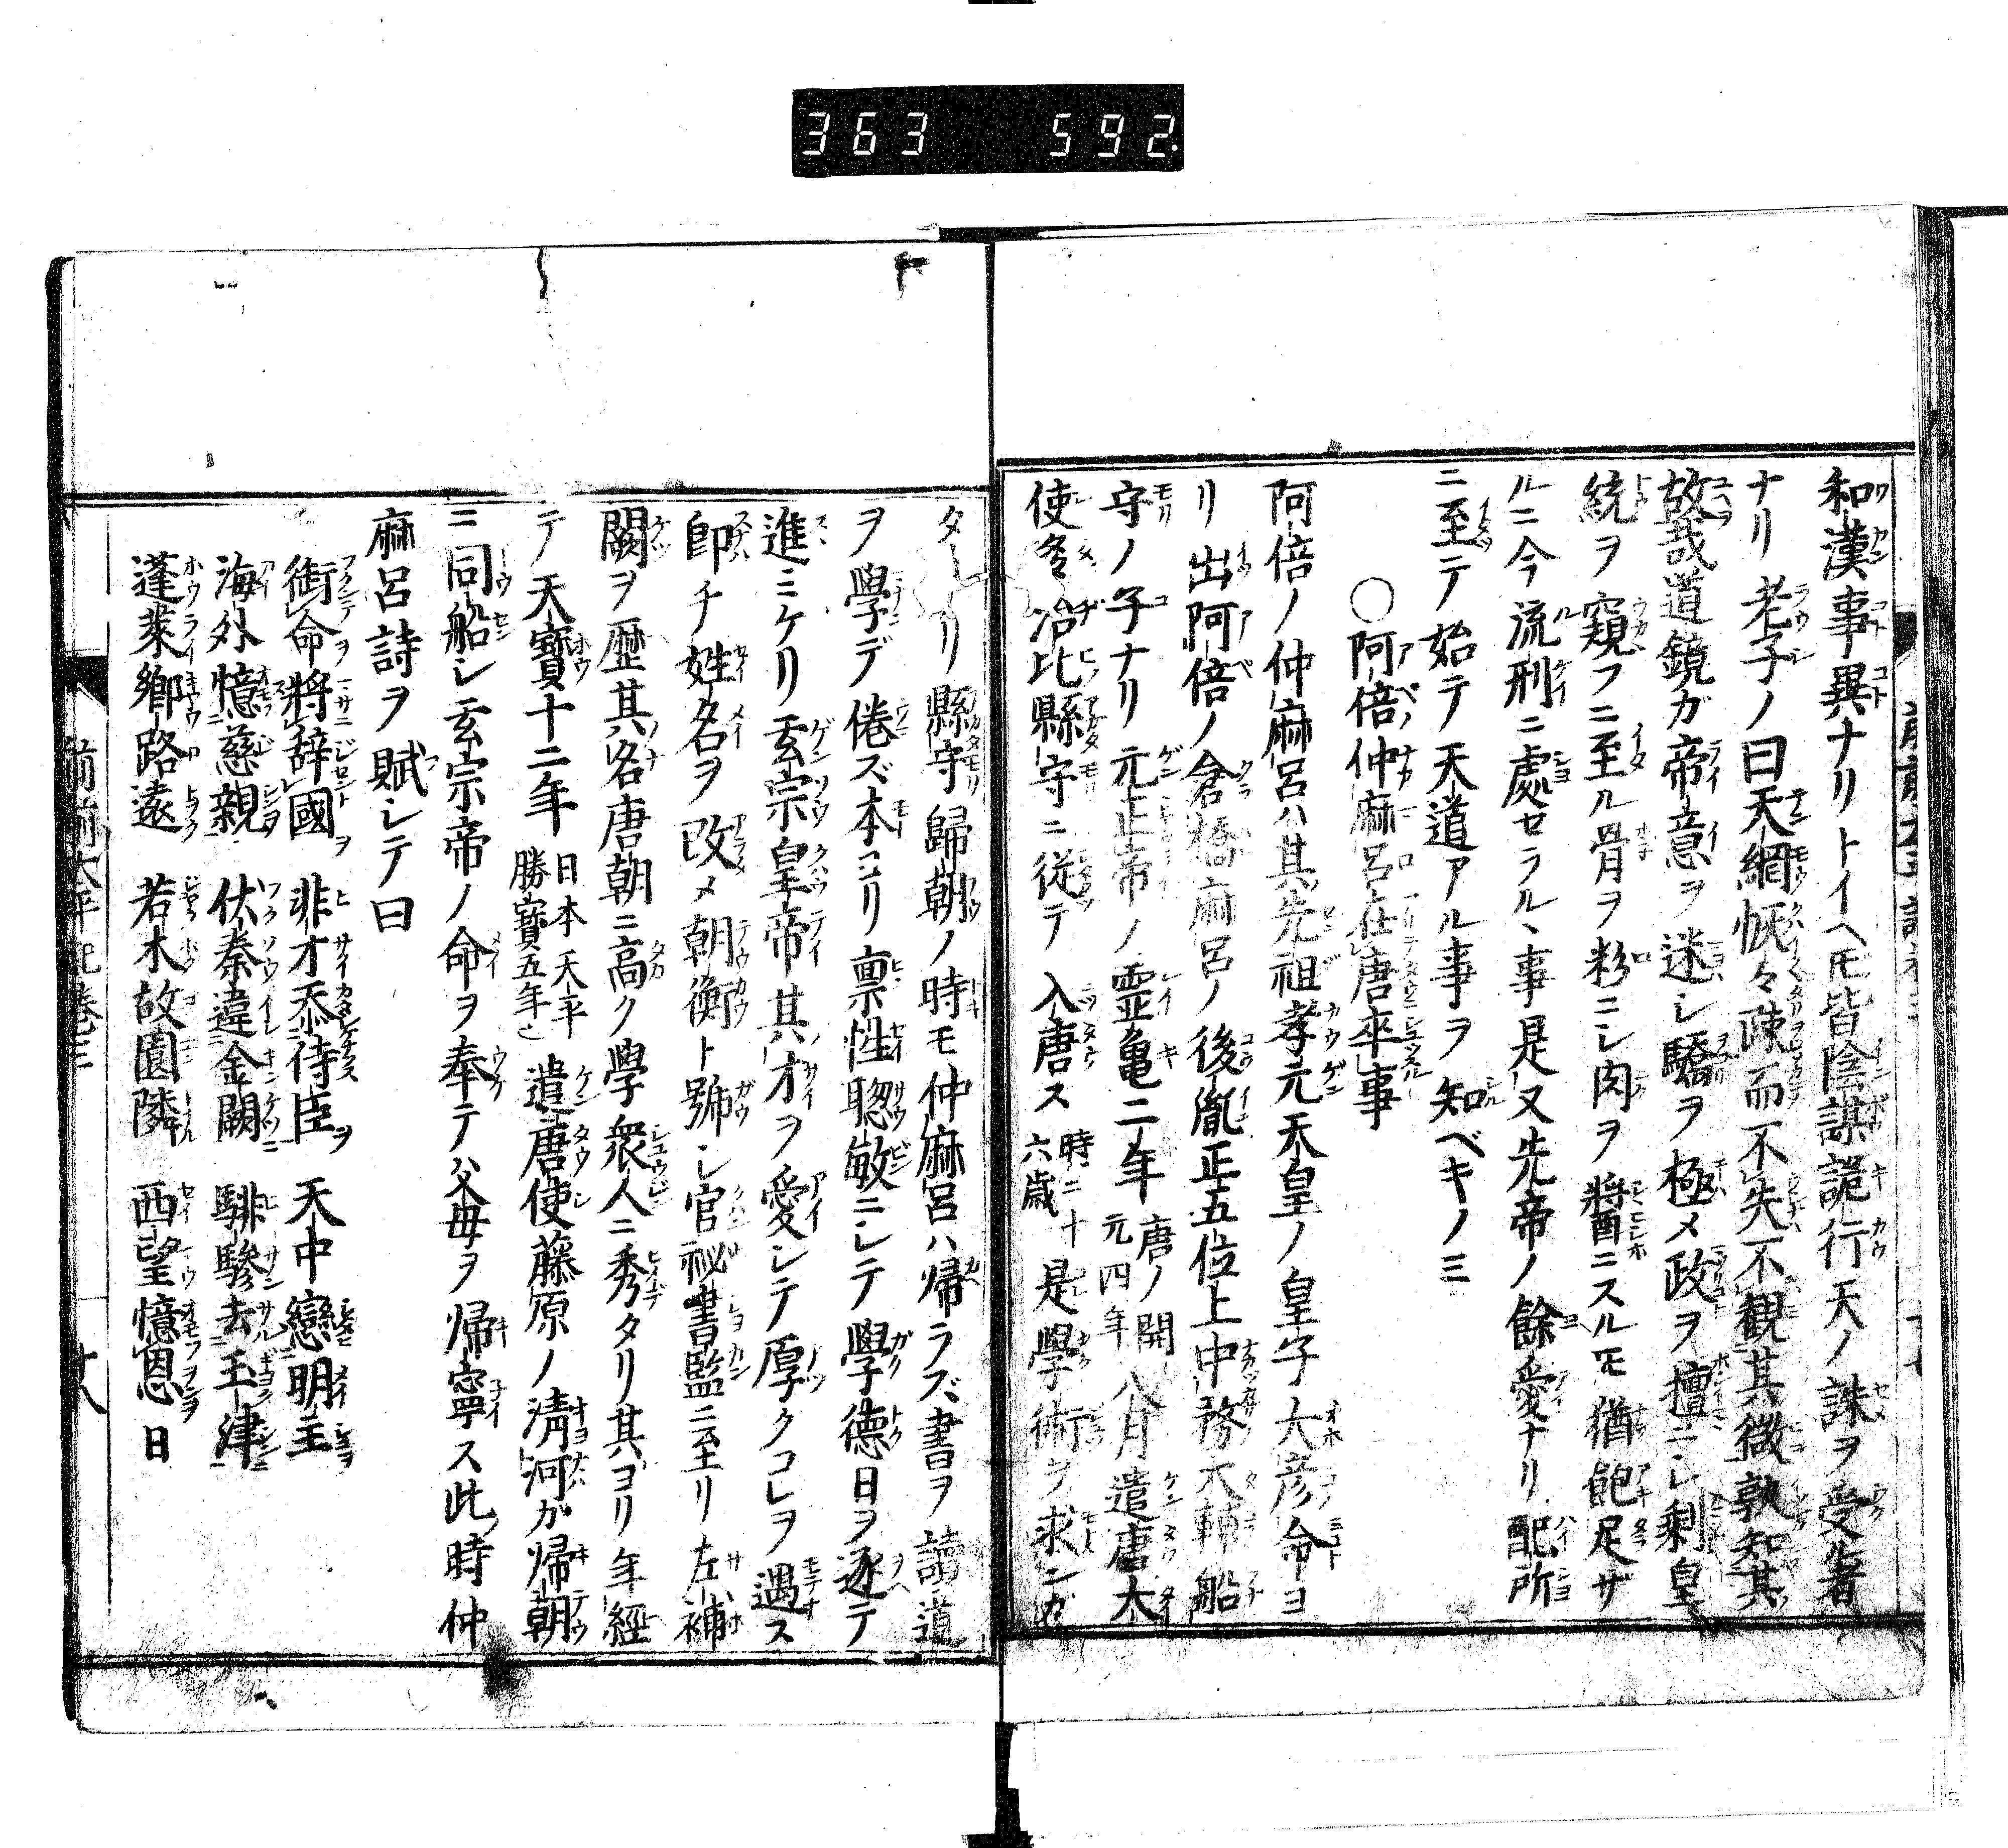 363 592
和漢事異ナリトイヘ𪜈皆陰謀詭行天ノ誅ヲ受者
ナリ老子ノ曰天網恢々疎而不失不觀其徴孰知其
故哉道鏡ガ帝意ヲ迷シ驕ヲ極メ政ヲ擅ニシ剰皇
統ヲ窺フニ至ル骨ヲ粉ニシ肉ヲ醬ニスル𪜈猶飽足ザ
ルニ今流刑ニ處セラルヽ事是又先帝ノ餘愛ナリ配所
ニ至テ始テ天道アル事ヲ知ベキノミ
○阿倍仲麻呂在唐卒事
阿倍ノ仲麻呂ハ其先祖孝元天皇ノ皇子大彦命ヨ
リ出阿倍ノ倉橋麻呂ノ後胤正五位上中務大輔船
守ノ子ナリ元正帝ノ霊亀二年唐ノ開元四年八月遣唐大
使多治比縣守ニ従テ入唐ス時ニ十六歳是學術ヲ求ンガ
タメナリ縣守歸朝ノ時モ仲麻呂ハ帰ラズ書ヲ讀道
ヲ學デ倦ズ本ヨリ禀性聡敏ニシテ學德日ヲ逐テ
進ミケリ玄宗皇帝其才ヲ愛シテ厚クコレヲ遇ス
即チ姓名ヲ改メ朝衡ト號シ官祕書監ニ至リ左補
闕ヲ歴其名唐朝ニ高ク學衆人ニ秀タリ其ヨリ年經
テ天寶十二年日本天平勝寶五年也遣唐使藤原ノ清河ガ帰朝
ニ同船シ玄宗帝ノ命ヲ奉テ父母ヲ帰寧ス此時仲
麻呂詩ヲ賦シテ曰
銜命將辞國 非才忝侍臣 天中戀明主
海外憶慈親 伏奏違金闕 騑驂去玉津
蓬萊鄉路遠 若木故園隣 西望憶恩日
前前太平記巻三
廿八